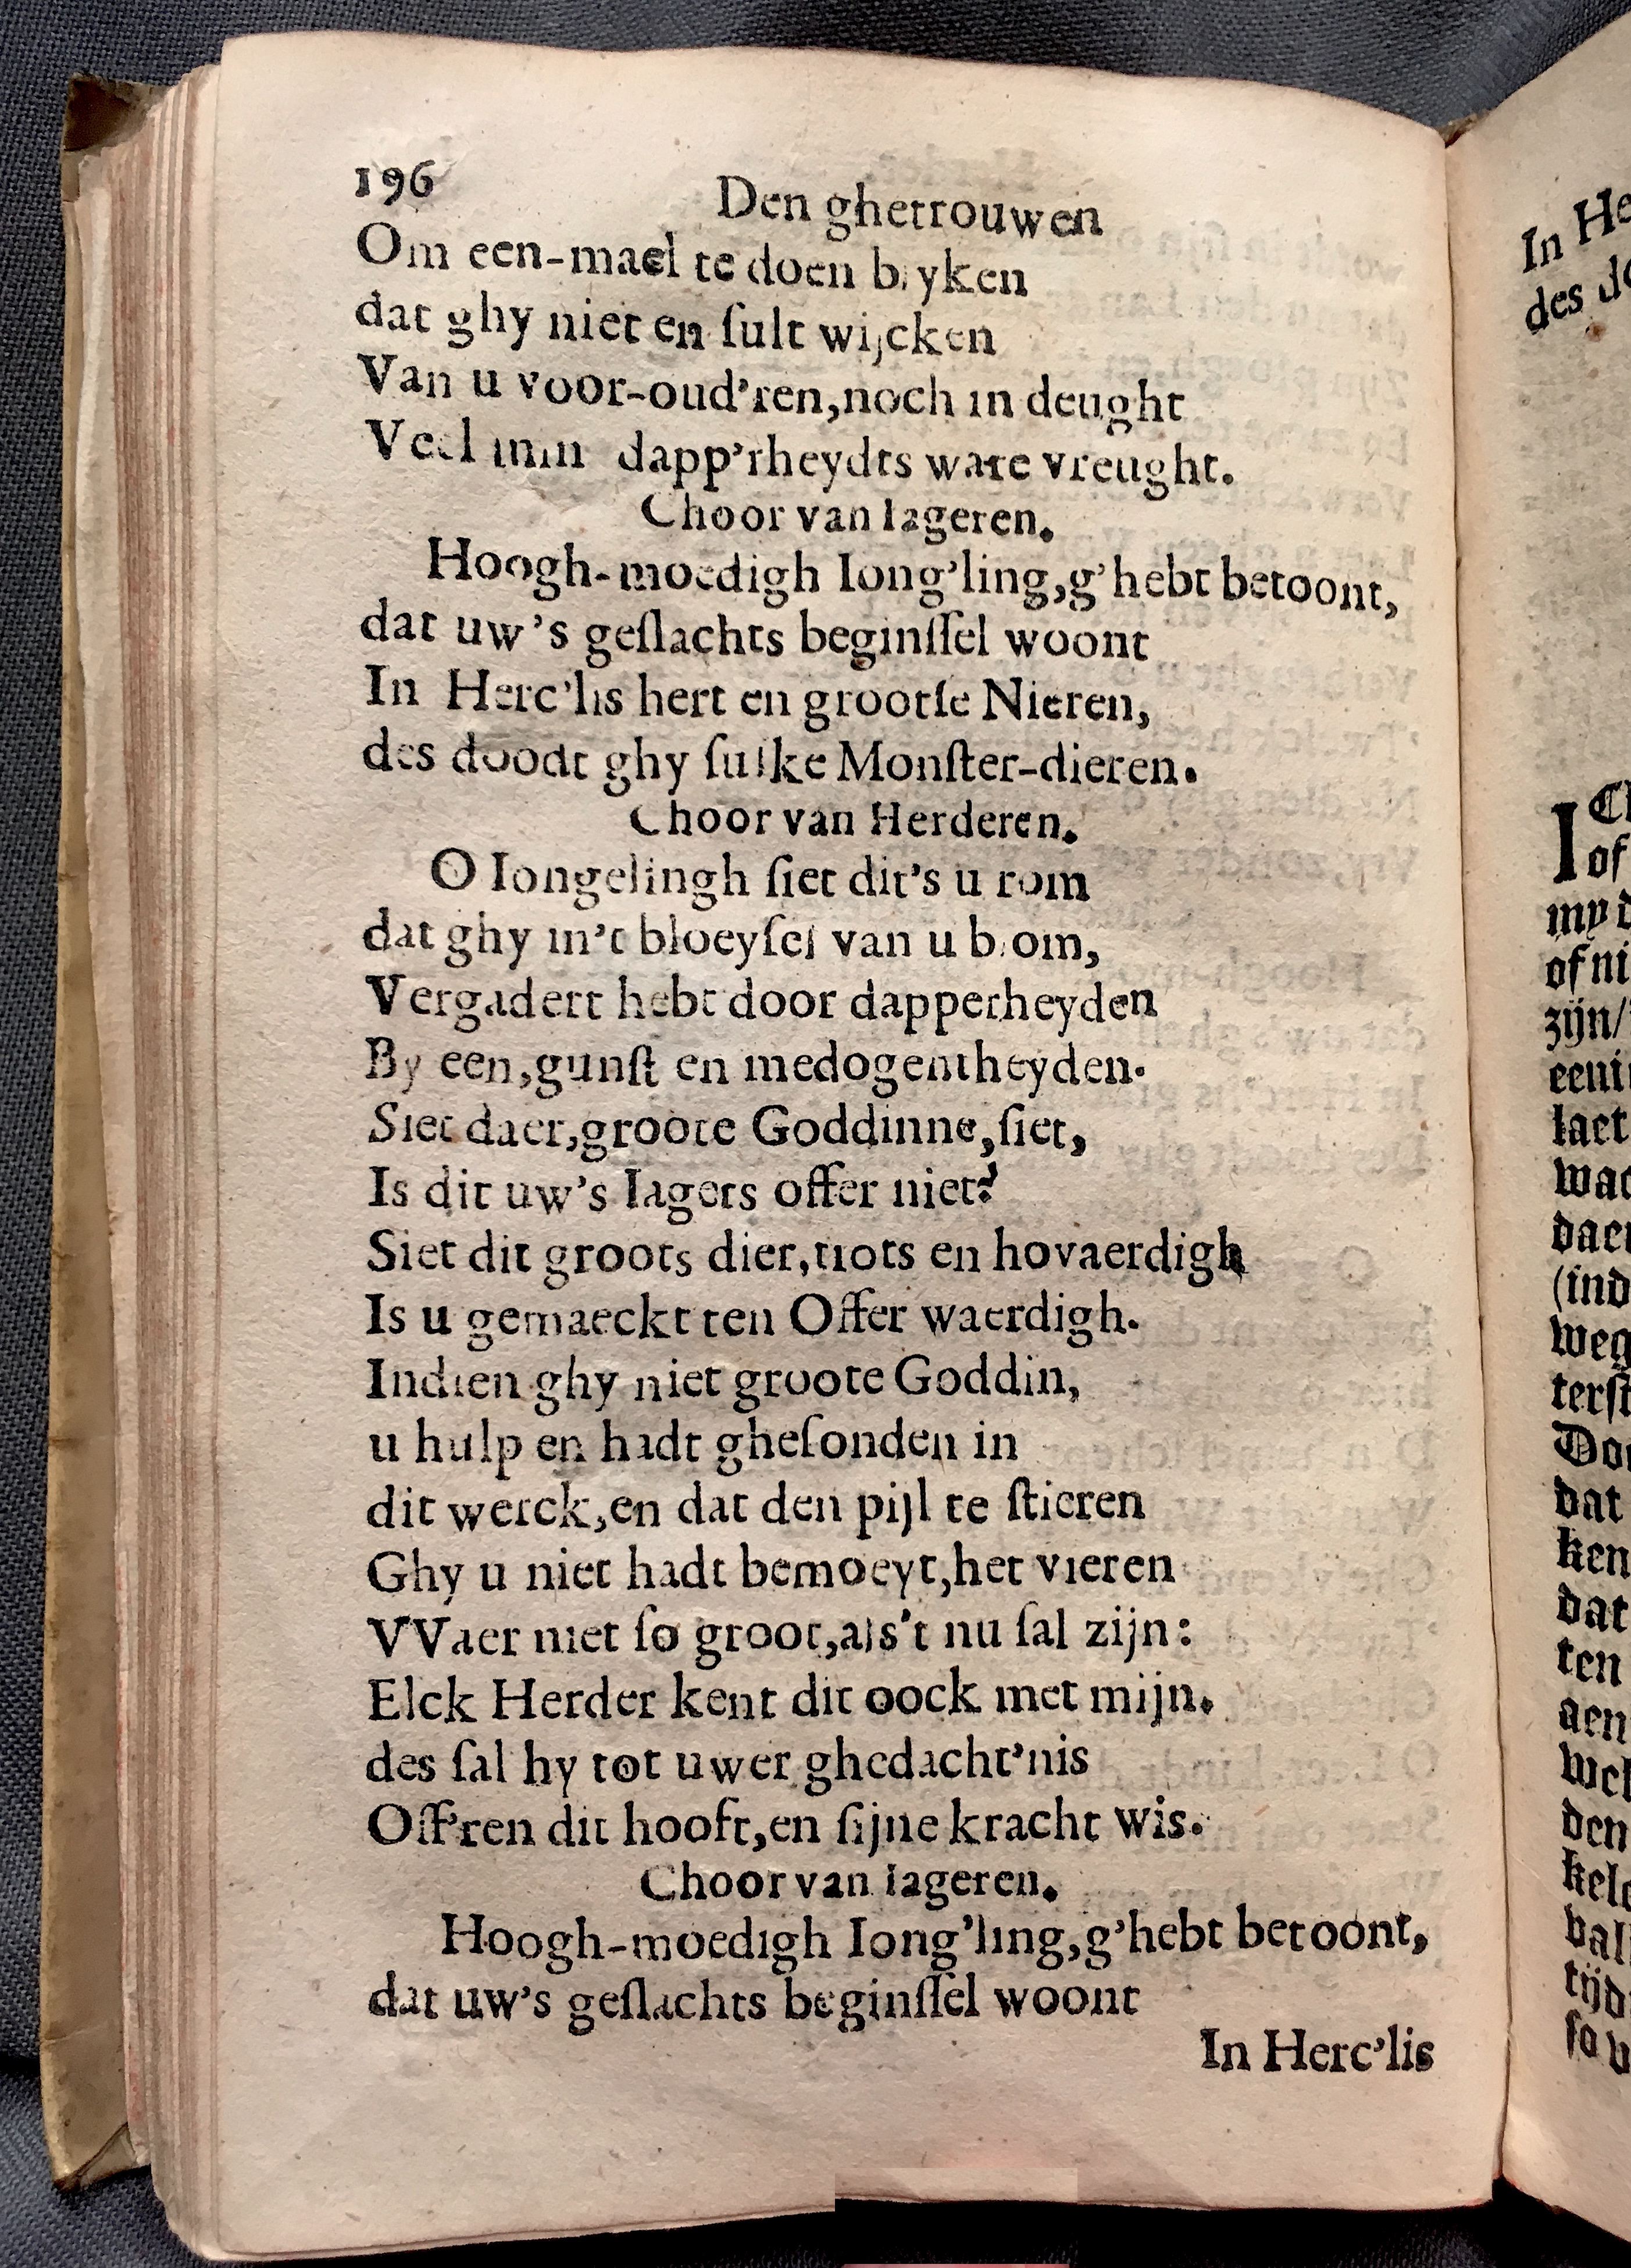 196
Den ghetrouwen
Om een-mael te doen blyken
dat ghy niet en ſult wijcken
Van u voor-oud'ren,noch in deught
Veel min dapp'rheydts ware vreught.
Choor van Iageren.
Hoogh-moedigh Iong'ling,g'hebt betoont,
dat uw's geſlachts beginſſel woont
In Herc'lis hert en grootſe Nieren,
des doodt ghy ſulke Monſter-dieren.
Choor van Herderen.
O Iongelingh ſiet dit's u rom
dat ghy in't bloeyſel van u blom,
Vergadert hebt door dapperheyden
By een,gunſt en medogentheyden.
Siet daer,groote Goddinne,ſiet,
Is dit uw's Iagers offer niet?
Siet dit groots dier,trots en hovaerdigh
Is u gemaeckt ten Offer waerdigh.
Indien ghy niet groote Goddin,
u hulp en hadt gheſonden in
dit werck,en dat den pijl te ſtieren
Ghy u niet hadt bemoeyt,het vieren
VVaer niet ſo groot,als't nu ſal zijn:
Elck Herder kent dit oock met mijn.
des ſal hy tot uwer ghedacht'nis
Off'ren dit hooft,en ſijne kracht wis.
Choor van Iageren.
Hoogh-moedigh Iong'ling,g'hebt betoont,
dat uw's geſlachts beginſſel woont
In Herc'lis
In He
des do
of
my d
of ni
zijn/
eeni
laet
wae
daer
(ind
weg
terſt
Doo
dat
ken
dat
ten
aen
wel
den
kele
val
tijd
ſo v